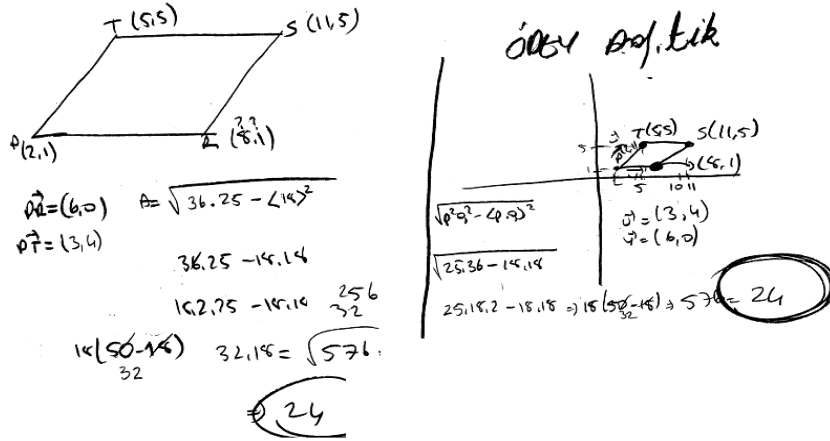 T (5,5) S (11,5)
P (2,1) R (8,1)
? ?
PR = (6,0) A = √36.25 - <18>²
PT = (3,4)
36.25 - 18.18
18.2.25 - 18.18
256
32
18(50-18) 32.18 = √576
32
⇒ 24
T(5,5) S(11,5)
(8,1)
5
1
5 10 11
√p²q² - <p.q>²
u = (3,4)
v = (6,0)
√25.36 - 18.18
25.18.2 - 18.18 ⇒ 18(50-18) ⇒ 576 = 24
32